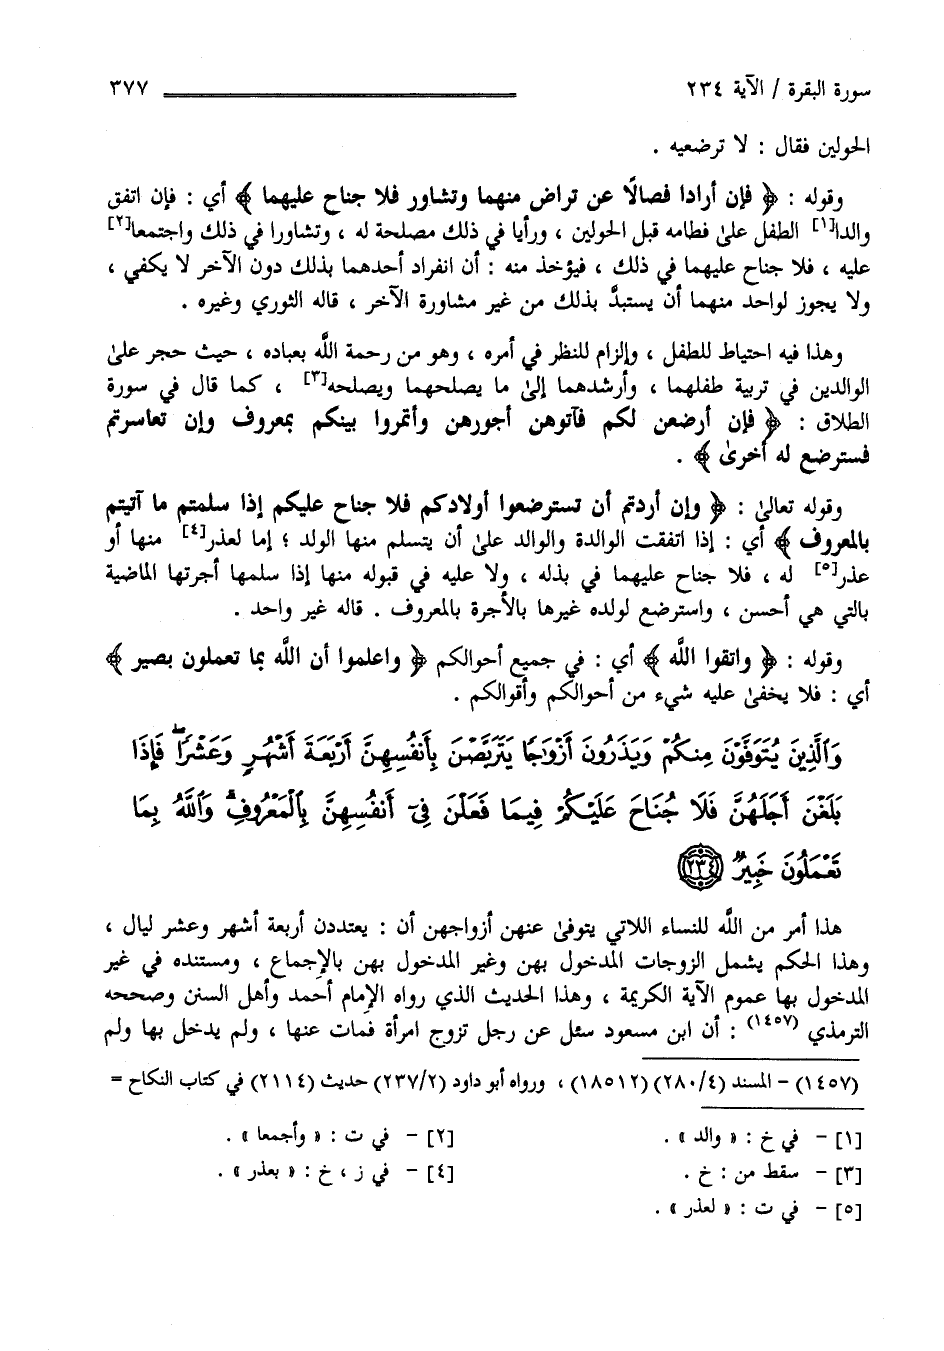 سورة البقرة / الآية ٢٣٤ ٣٧٧
الحولين فقال : لا ترضعيه .
وقوله : ﴿ فإن أرادا فصالًا عن تراض منهما وتشاور فلا جناح عليهما ﴾ أي : فإن اتفق
والدا[١] الطفل على فطامه قبل الحولين ، ورأيا في ذلك مصلحة له ، وتشاورا في ذلك واجتمعا[٢]
عليه ، فلا جناح عليهما في ذلك ، فيؤخذ منه : أن انفراد أحدهما بذلك دون الآخر لا يكفي ،
ولا يجوز لواحد منهما أن يستبدَّ بذلك من غير مشاورة الآخر ، قاله الثوري وغيره .
وهذا فيه احتياط للطفل ، وإلزام للنظر في أمره ، وهو من رحمة اللَّه بعباده ، حيث حجر على
الوالدين في تربية طفلهما ، وأرشدهما إلى ما يصلحهما ويصلحه[٣] ، كما قال في سورة
الطلاق : ﴿ فإن أرضعن لكم فآتوهن أجورهن وأتمروا بينكم بمعروف وإن تعاسرتم
فسترضع له أخرى ﴾ .
وقوله تعالى : ﴿ وإن أردتم أن تسترضعوا أولادكم فلا جناح عليكم إذا سلمتم ما آتيتم
بالمعروف ﴾ أي : إذا اتفقت الوالدة والوالد على أن يتسلم منها الولد ؛ إما لعذر[٤] منها أو
عذر[٥] له ، فلا جناح عليهما في بذله ، ولا عليه في قبوله منها إذا سلمها أجرتها الماضية
بالتي هي أحسن ، واسترضع لولده غيرها بالأجرة بالمعروف . قاله غير واحد .
وقوله : ﴿ واتقوا اللَّه ﴾ أي : في جميع أحوالكم ﴿ واعلموا أن اللَّه بما تعملون بصير ﴾
أي : فلا يخفى عليه شيء من أحوالكم وأقوالكم .
وَٱلَّذِينَ يُتَوَفَّوْنَ مِنكُمْ وَيَذَرُونَ أَزْوَٰجًا يَتَرَبَّصْنَ بِأَنفُسِهِنَّ أَرْبَعَةَ أَشْهُرٍ وَعَشْرًاۖ فَإِذَا
بَلَغْنَ أَجَلَهُنَّ فَلَا جُنَاحَ عَلَيْكُمْ فِيمَا فَعَلْنَ فِىٓ أَنفُسِهِنَّ بِٱلْمَعْرُوفِۗ وَٱللَّهُ بِمَا
تَعْمَلُونَ خَبِيرٌ ٢٣٤
هذا أمر من اللَّه للنساء اللاتي يتوفى عنهن أزواجهن أن : يعتددن أربعة أشهر وعشر ليال ،
وهذا الحكم يشمل الزوجات المدخول بهن وغير المدخول بهن بالإجماع ، ومستنده في غير
المدخول بها عموم الآية الكريمة ، وهذا الحديث الذي رواه الإمام أحمد وأهل السنن وصححه
الترمذي (١٤٥٧) : أن ابن مسعود سئل عن رجل تزوج امرأة فمات عنها ، ولم يدخل بها ولم
(١٤٥٧) – المسند (٢٨٠/٤) (١٨٥١٢) ، ورواه أبو داود (٢٣٧/٢) حديث (٢١١٤) في كتاب النكاح =
[١] – في خ : « والد » . [٢] – في ت : « وأجمعا » .
[٣] – سقط من : خ . [٤] – في ز ، خ : « بعذر » .
[٥] – في ت : « لعذر » .